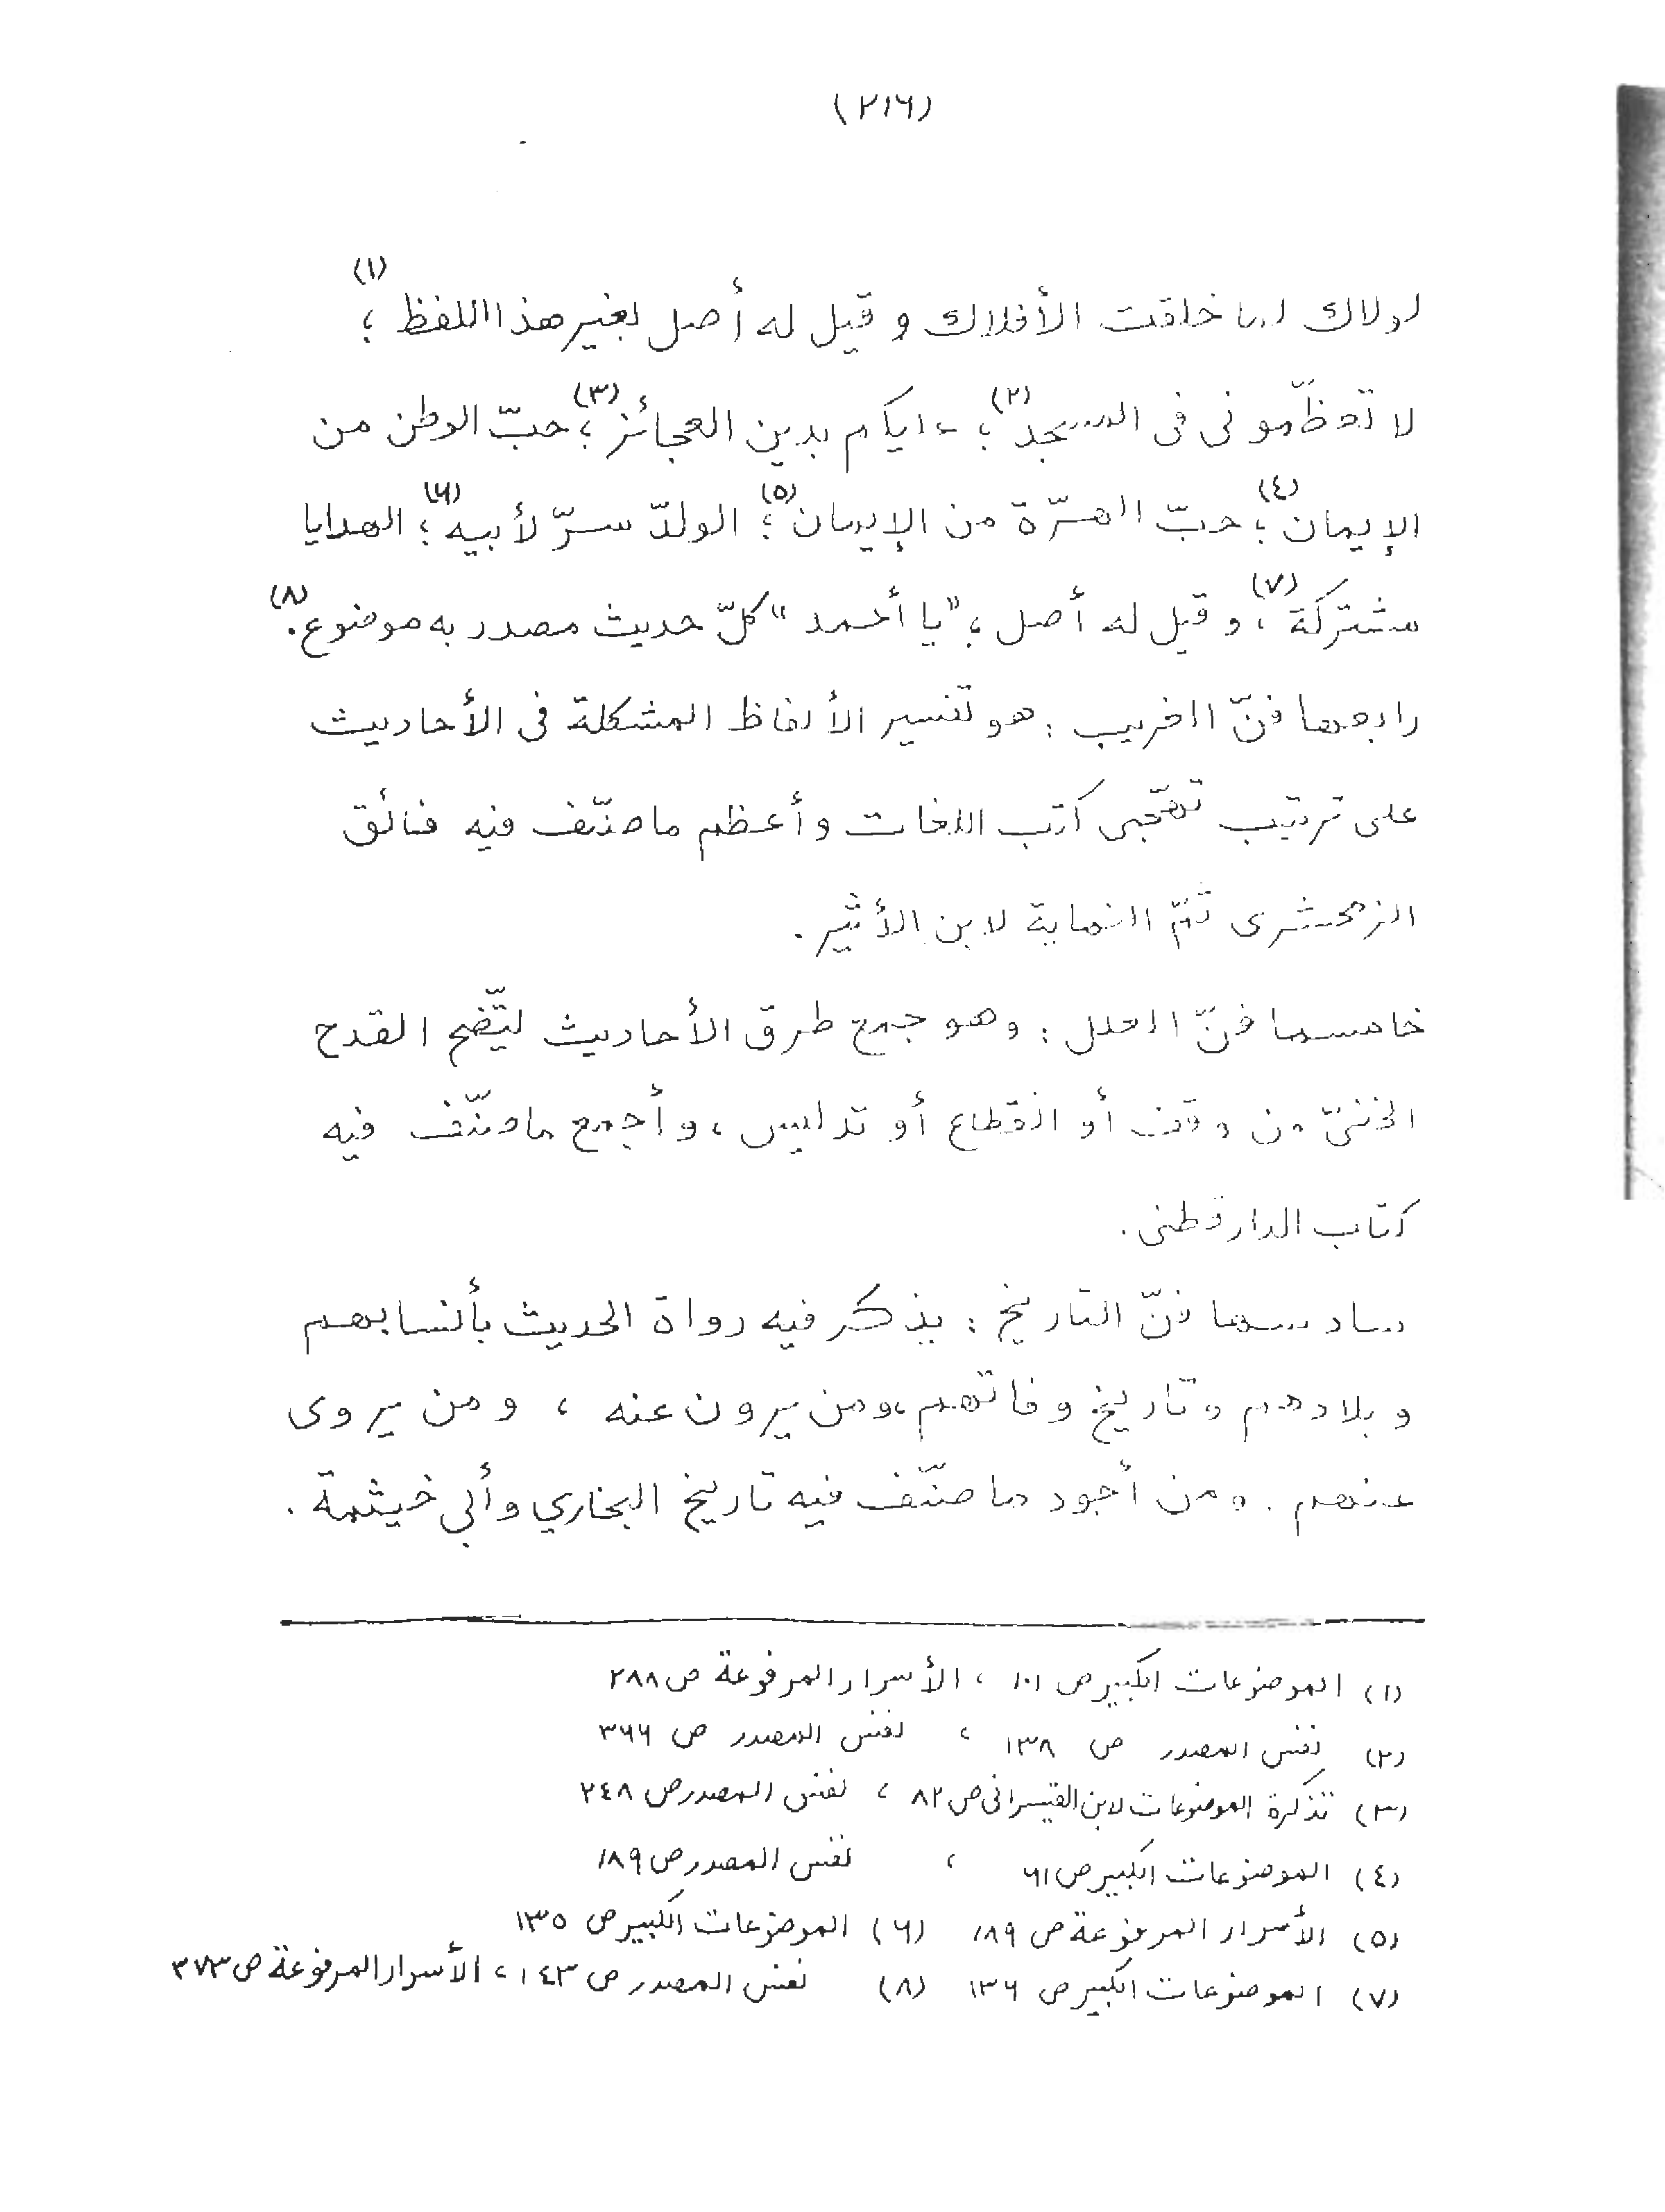 (٢١٦)
لولاك لما خلقت الأفلاك وقيل له أصل بغير هذا اللفظ؛(١)
لا تعظّمونى فى المسجد؛(٢) عليكم بدين العجائز؛(٣) حبّ الوطن من
الإيمان؛(٤) حبّ الهرّة من الإيمان؛(٥) الولدّ سرّ لأبيه؛(٦) الهدايا
مشتركة،(٧) وقيل له أصل؛ "يا أحمد" كلّ حديث مصدر به موضوع.(٨)
رابعها فنّ الغريب: هو تفسير الألفاظ المشكلة فى الأحاديث
على ترتيب تهجّى كتب اللغات وأعظم ما صنّف فيه فائق
الزمخشرى ثمّ النهاية لابن الأثير.
خامسها فنّ العلل: وهو جمع طرق الأحاديث ليتّضح القدح
الخفىّ من وقف أو انقطاع أو تدليس، وأجمع ما صنّف فيه
كتاب الدارقطنى.
سادسها فنّ التاريخ: يذكر فيه رواة الحديث بأنسابهم
وبلادهم وتاريخ وفاتهم، ومن يرون عنه، ومن يروى
عنهم. ومن أجود ما صنّف فيه تاريخ البخاري وأبى خيثمة.
(١) الموضوعات الكبير ص ١٠١، الأسرار المرفوعة ص ٢٨٨
(٢) نفس المصدر ص ١٣٨، نفس المصدر ص ٣٦٦
(٣) تذكرة الموضوعات لابن القيسرانى ص ٨٢، نفس المصدر ص ٢٤٨
(٤) الموضوعات الكبير ص ٦١، نفس المصدر ص ١٨٩
(٥) الأسرار المرفوعة ص ١٨٩ (٦) الموضوعات الكبير ص ١٣٥
(٧) الموضوعات الكبير ص ١٣٦ (٨) نفس المصدر ص ١٤٣، الأسرار المرفوعة ص ٣٧٣